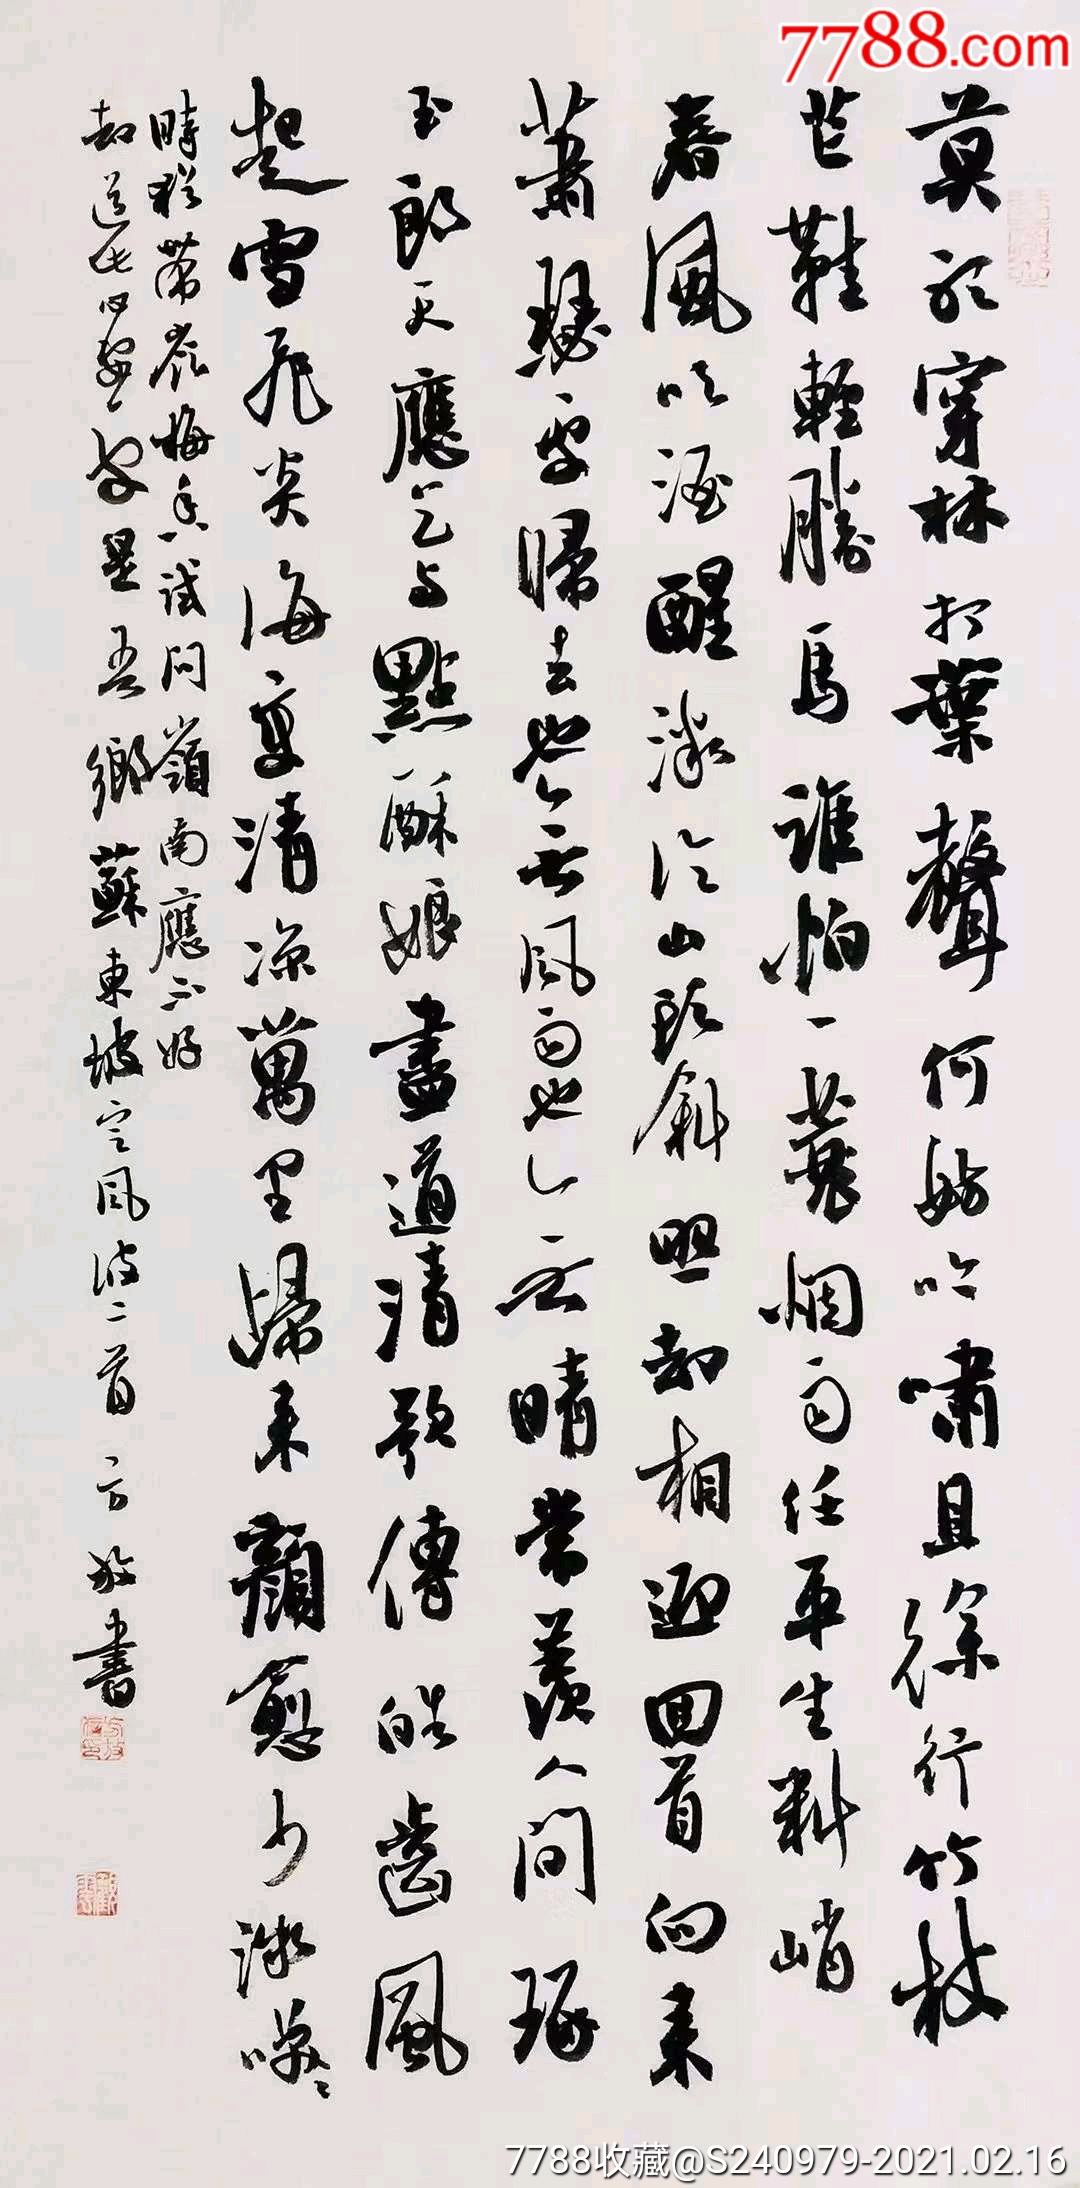 7788.com
莫聽穿林打葉聲何妨吟嘯且徐行竹杖
芒鞋輕勝馬誰怕一蓑烟雨任平生料峭
春風吹酒醒微冷山頭斜照却相迎回首向來
蕭瑟處歸去也無風雨也無晴常羨人間琢
玉郎天應乞与點酥娘盡道清歌傳皓齒風
起雪飛炎海變清凉萬里歸來顏愈少微咲〻
時猶帶嶺梅香試問嶺南應不好
却道此心安處是吾鄉蘇東坡定風波二首方放書
7788收藏@S240979-2021.02.16